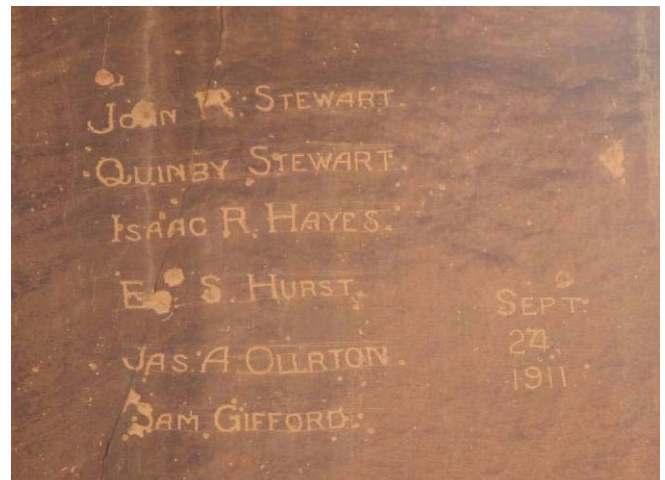 JOHN R. STEWART.
QUINBY STEWART.
ISAAC R. HAYES.
E S. HURST.
JAS. A OLLRTON.
SAM GIFFORD.
SEPT.
24,
1911